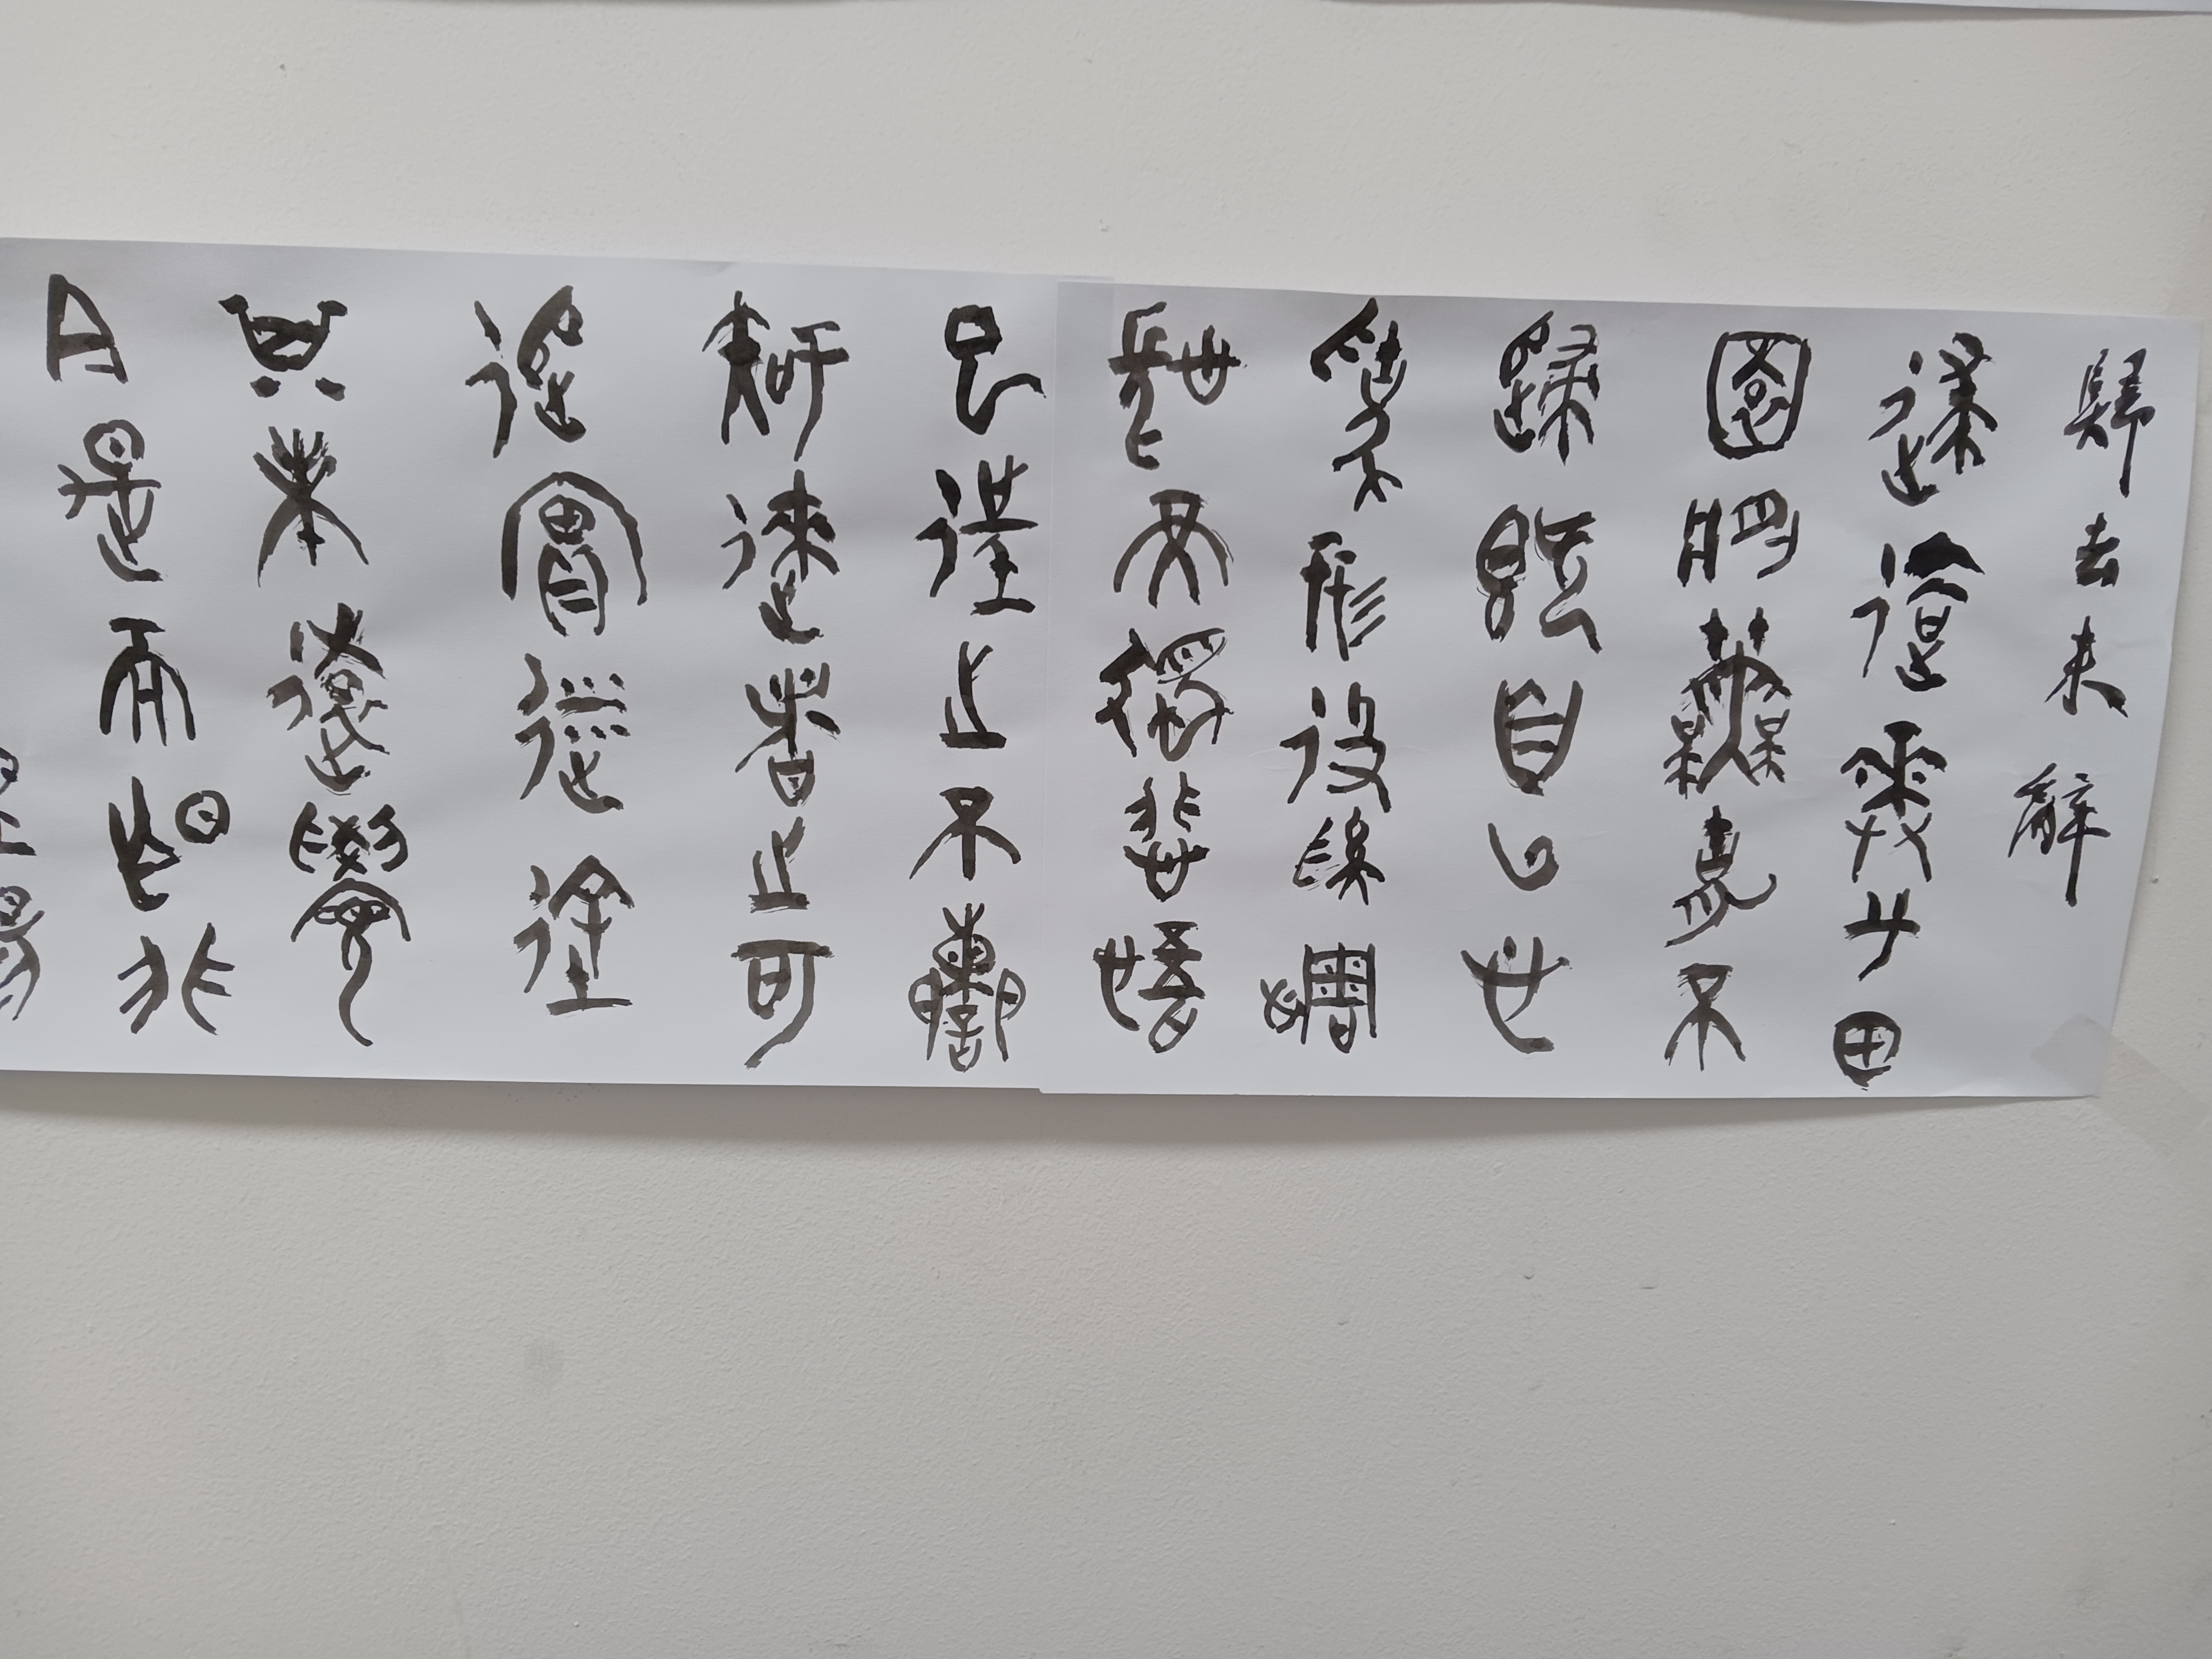 歸去来辭
歸去來兮田
園將蕪胡不
歸既自以心
為形役奚惆
悵而獨悲悟
已往之不諫
知來者之可
追實迷途
其未遠覺
今是而昨非